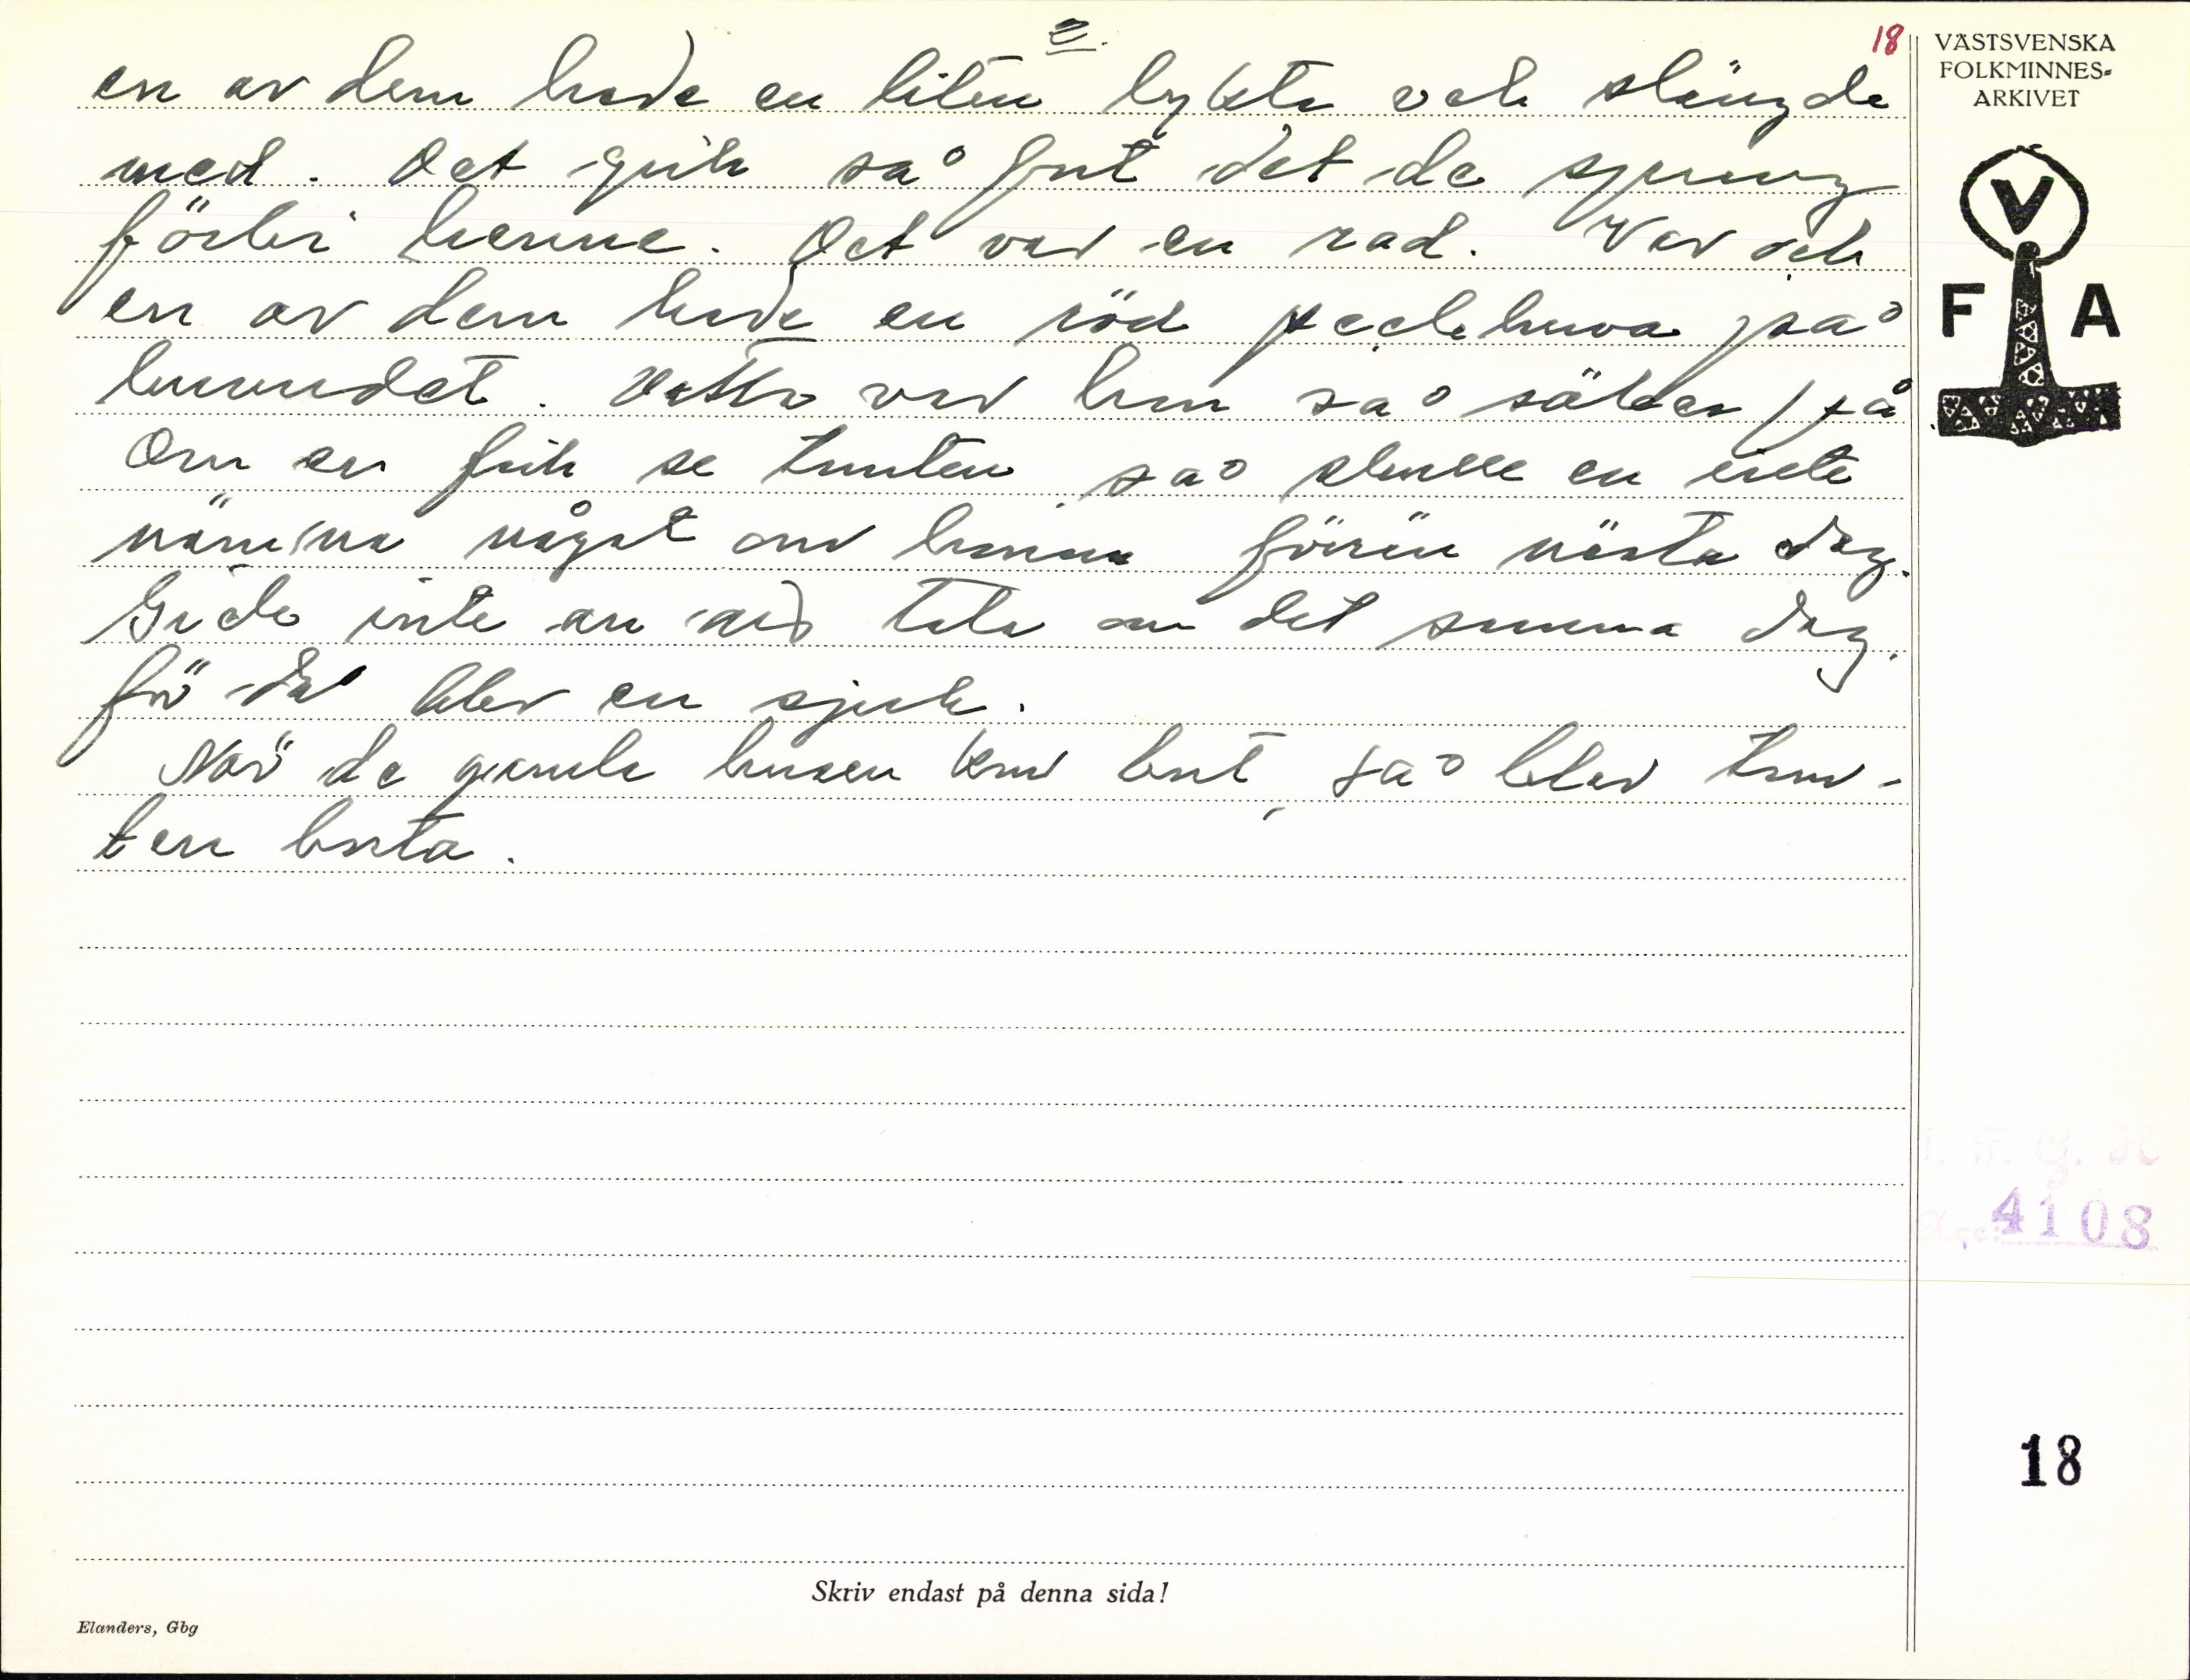 2.
18
en av dem hade en liten lykta och slängde
med. Det gick så fort det de sprung
förbi henne. Det var en rad. Var och
en av dem hade en röd huva på
huvudet. Detta var hon så säker på
Om en fick se tomten så skulle en inte
nämna något om honom förrän nästa dag.
inte an tala om det samma dag.
för då blev en sjuk.
När de gamla husen kom bort, så blev tom-
ten borta.
VÄSTSVENSKA
FOLKMINNES-
ARKIVET
V
F A
4108
18
Skriv endast på denna sida!
Elanders, Gbg